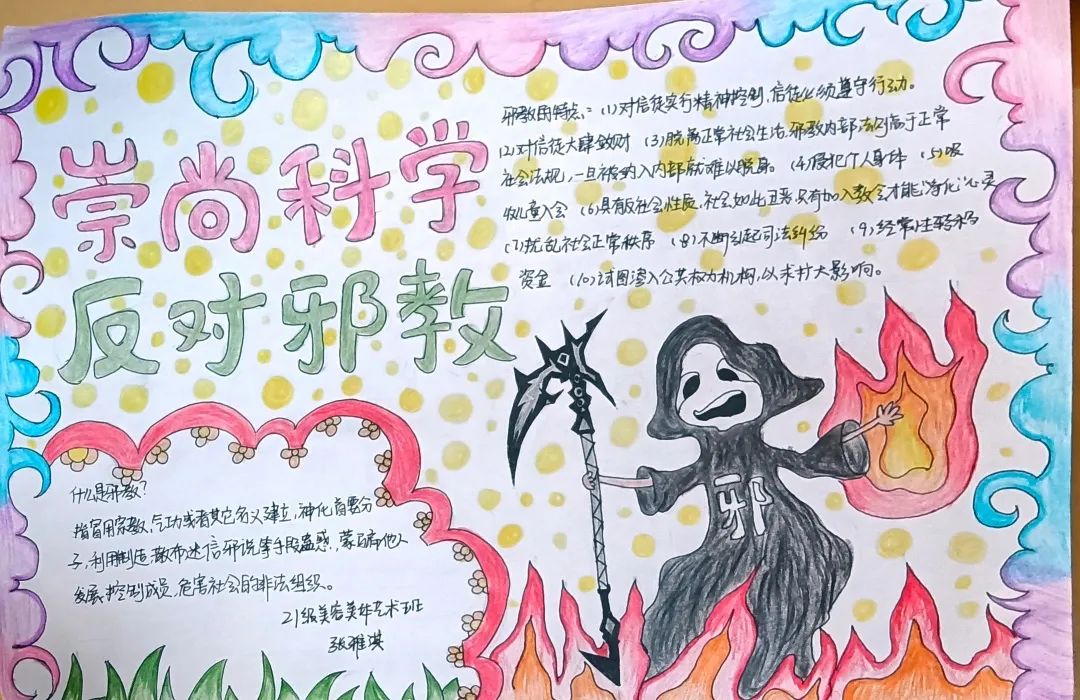 崇尚科学
反对邪教
邪教的特点：(1)对信徒实行精神控制，信徒必须遵守行动。
(2)对信徒大肆敛财 (3)脱离正常社会生活，邪教内部法则高于正常
社会法规，一旦被纳入内部就难以脱身。 (4)侵犯个人身体 (5)吸
收儿童入会 (6)具有反社会性质，社会如此丑恶，只有加入教会才能"净化"心灵
(7)扰乱社会正常秩序 (8)不断引起司法纠纷 (9)经常性转移
资金 (10)试图渗入公共权力机构，以求扩大影响。
邪
什么是邪教？
指冒用宗教、气功或者其它名义建立，神化首要分
子，利用制造、散布迷信邪说等手段蛊惑、蒙骗他人
发展、控制成员，危害社会的非法组织。
21级美容美体艺术班
张雅淇